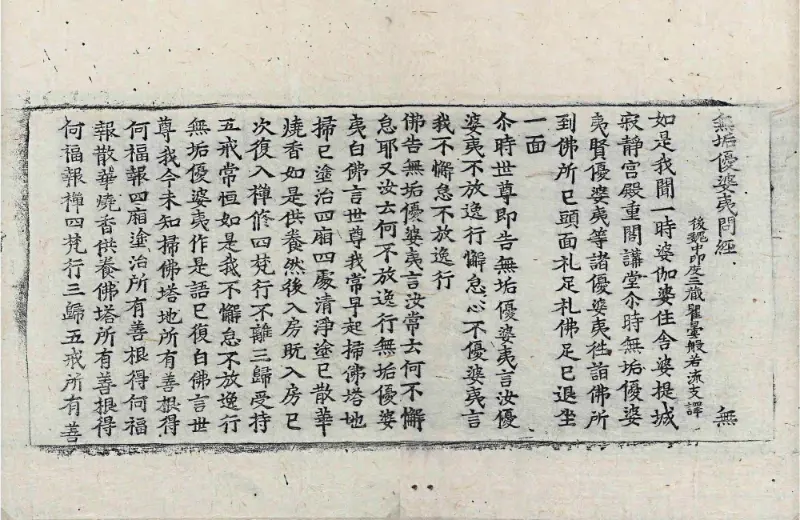 無垢優婆夷問經 無
後魏中印度三藏瞿曇般若流支譯
如是我聞一時婆伽婆住舍婆提城
寂静宮殿重閣講堂尒時無垢優婆
夷賢優婆夷等諸優婆夷往詣佛所
到佛所已頭面礼足礼佛足已退坐
一面
尒時世尊即告無垢優婆夷言汝優
婆夷不放逸行懈怠心不優婆夷言
我不懈怠不放逸行
佛告無垢優婆夷言汝常云何不懈
怠耶又汝云何不放逸行無垢優婆
夷白佛言世尊我常早起掃佛塔地
掃已塗治四廂四處清淨塗已散華
燒香如是供養然後入房既入房已
次復入禪修四梵行不離三歸受持
五戒常恒如是我不懈怠不放逸行
無垢優婆夷作是語已復白佛言世
尊我今未知掃佛塔地所有善根得
何福報四廂塗治所有善根得何福
報散華燒香供養佛塔所有善根得
何福報禪四梵行三歸五戒所有善